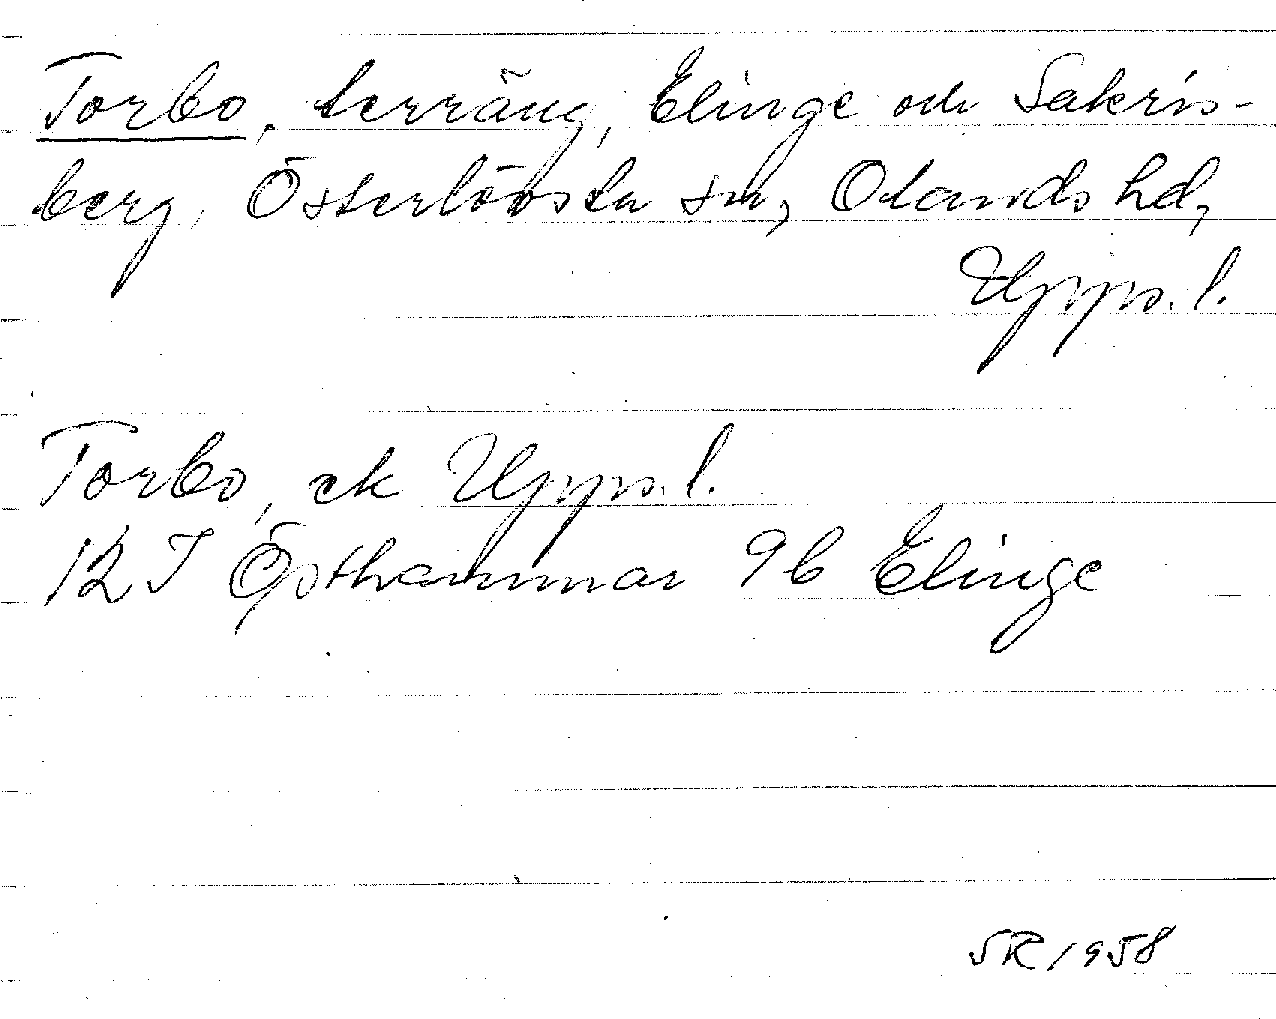 Torbo, terräng, Elinge och Sakris-
berg, Österlövsta sn, Olands hd,
Upps. l.
Torbo, ek Upps. l.
12 I Östhammar 9b Elinge
SR 1958